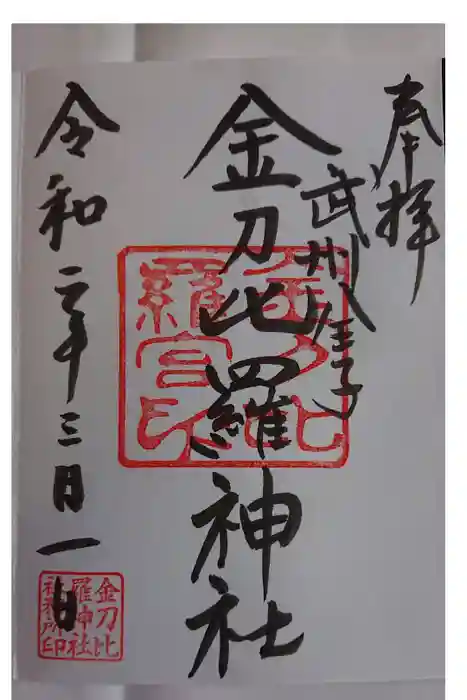 奉拝
武州八王子
金刀比羅神社
令和二年三月一日
金刀比羅宮印
金刀比羅神社社務所印